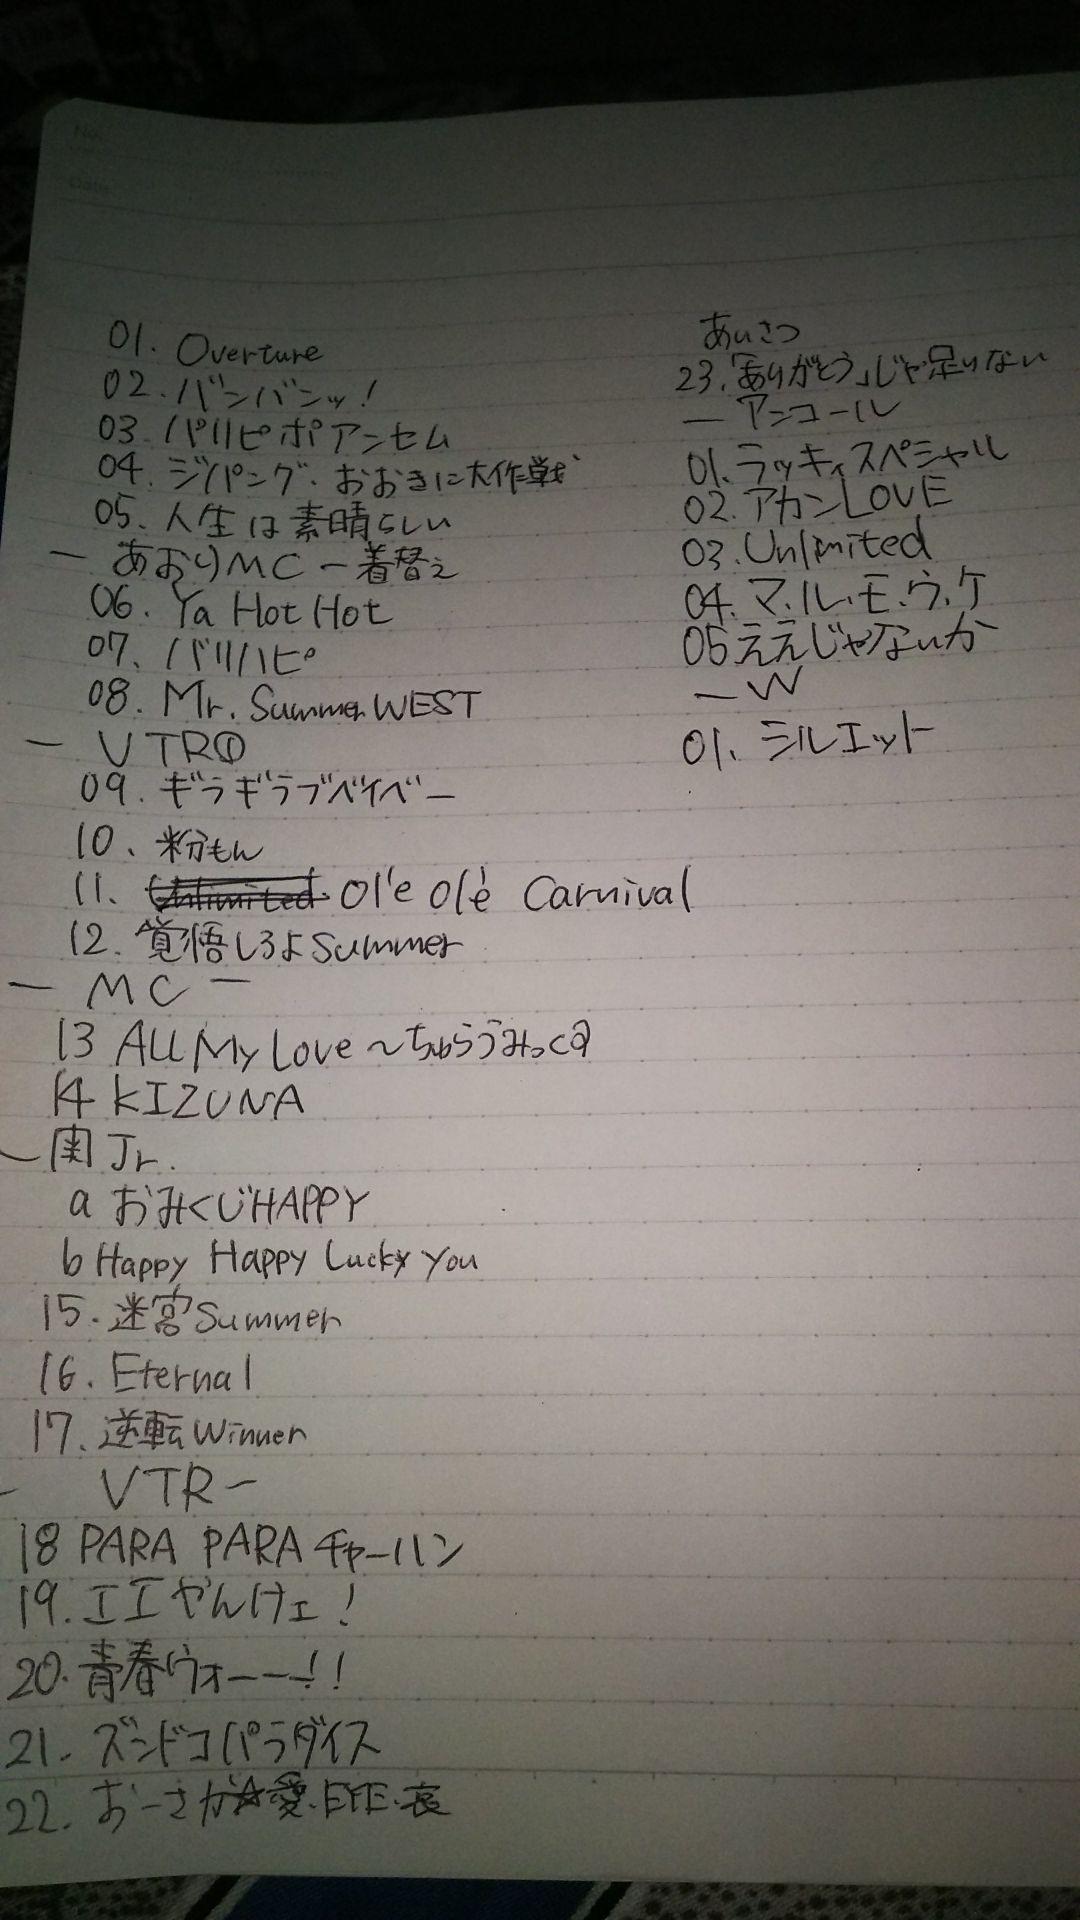 01. Overture
02. バンバンッ!
03. パリピポアンセム
04. ジパング・おおきに大作戦
05. 人生は素晴らしい
— あおりMC — 着替え
06. Ya Hot Hot
07. バリハピ
08. Mr. Summer WEST
— VTR①
09. ギラギラブベイベー
10. 粉もん
11. Unlimited Olé Olé Carnival
12. 覚悟しろよSummer
— MC —
13 All My Love ~ちゅらうみっく
14 KIZUNA
— 関Jr.
a おみくじHAPPY
b Happy Happy Lucky You
15. 迷宮Summer
16. Eternal
17. 逆転Winner
- VTR -
18 PARA PARA チャーハン
19. エエやんけェ!
20. 青春ウォーー!!
21. ズンドコパラダイス
22. おーさか☆愛・EYE・哀
あいさつ
23.「ありがとう」じゃ足りない
— アンコール
01. ラッキィスペシャル
02. アカンLOVE
03. Unlimited
04. マ.ル.モ.ウ.ケ
05 ええじゃないか
— W
01. シルエット